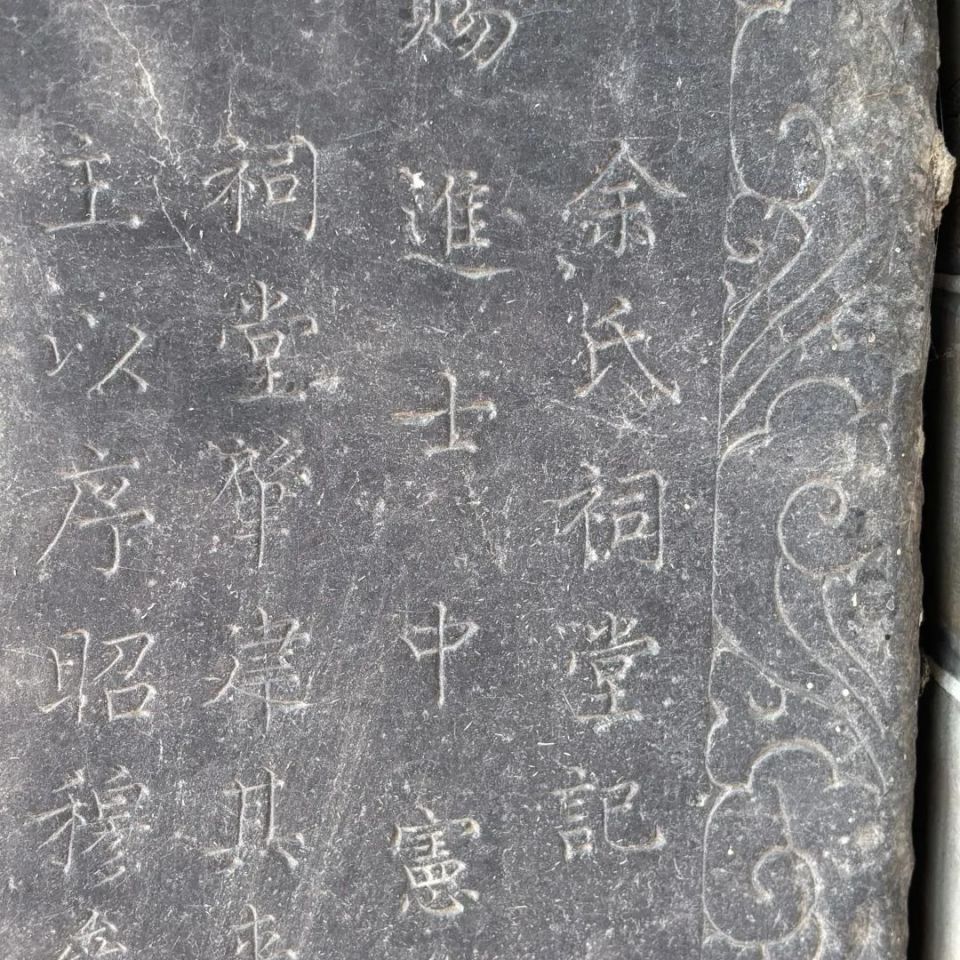 余氏祠堂記
賜進士中憲
祠堂肇建其
主以序昭穆